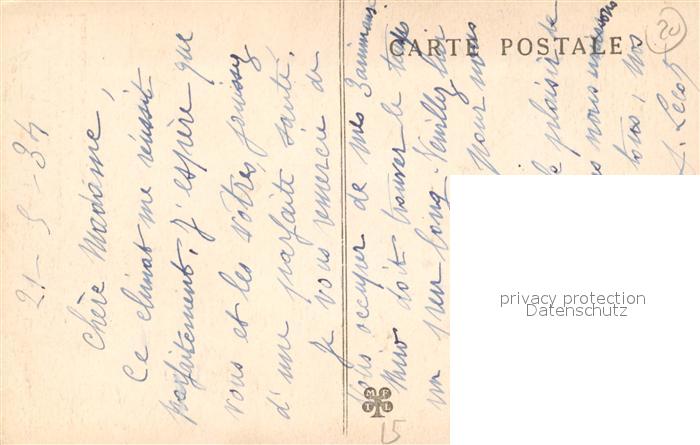 CARTE POSTALE
21-5-34
Chère Madame,
Ce climat me réussit
parfaitement, j'espère que
vous et les vôtres jouissez
d'une parfaite santé.
Je vous remercie de
vous occuper de mes
doit trouver le temps
un peu long. Veuillez lui
pour nous
le plaisir de
nous
tous, nos
privacy protection
Datenschutz
15